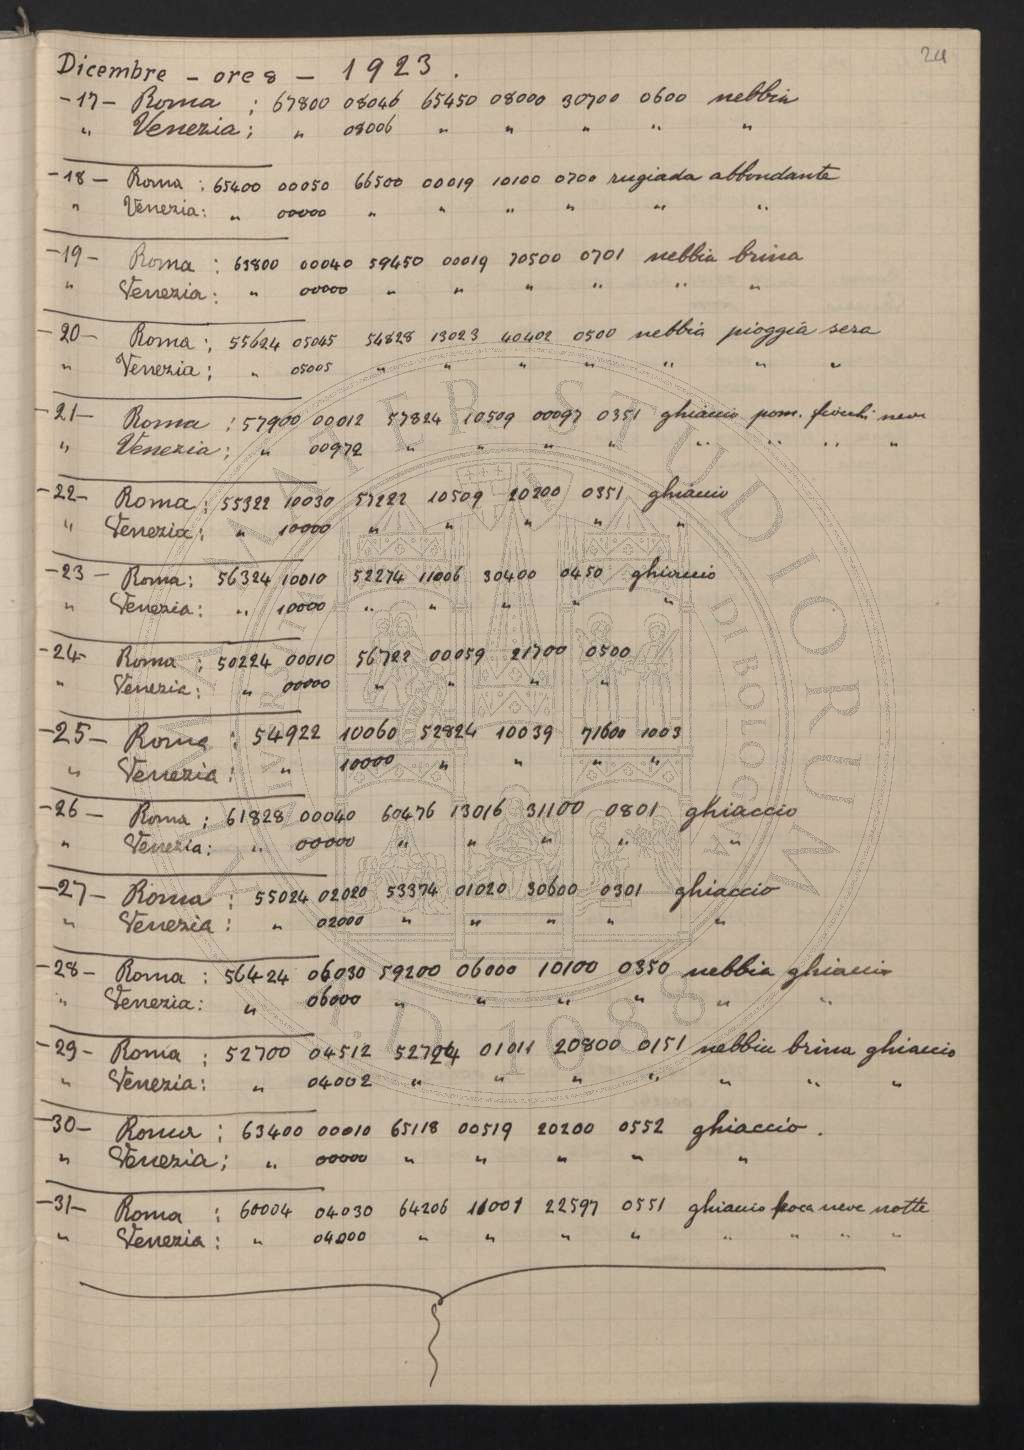 24
Dicembre - ore 8 - 1923.
-17- Roma : 67800 08046 65450 08000 30700 0600 nebbia
" Venezia : " 08006 " " " " "
-18- Roma : 65400 00050 66500 00019 10100 0700 rugiada abbondante
" Venezia : " 00000 " " " " " "
-19- Roma : 63800 00040 59450 00019 70500 0701 nebbia brina
" Venezia : " 00000 " " " " " "
-20- Roma : 55624 05045 54828 13023 40402 0500 nebbia pioggia sera
" Venezia : " 05005 " " " " " " "
-21- Roma : 57900 00012 57824 10509 00097 0351 ghiaccio pom. fiocchi neve
" Venezia : " 00972 " " " " " " " "
-22- Roma : 55322 10030 57222 10509 20200 0351 ghiaccio
" Venezia : " 10000 " " " " "
-23- Roma : 56324 10010 52274 11006 30400 0450 ghiaccio
" Venezia : " 10000 " " " " "
-24- Roma : 50224 00010 56722 00059 21700 0500
" Venezia : " 00000 " " " "
-25- Roma : 54922 10060 52824 10039 71600 1003
" Venezia : " 10000 " " " "
-26- Roma : 61828 00040 60476 13016 31100 0801 ghiaccio
" Venezia : " 00000 " " " " "
-27- Roma : 55024 02020 53374 01020 30600 0301 ghiaccio
" Venezia : " 02000 " " " " "
-28- Roma : 56424 06030 59200 06000 10100 0350 nebbia ghiaccio
" Venezia : " 06000 " " " " " "
-29- Roma : 52700 04512 52724 01011 20800 0151 nebbia brina ghiaccio
" Venezia : " 04002 " " " " " " "
-30- Roma : 63400 00010 65118 00519 20200 0552 ghiaccio.
" Venezia : " 00000 " " " " "
-31- Roma : 60004 04030 64206 11001 22597 0551 ghiaccio poca neve notte
" Venezia : " 04000 " " " " " " " "
ALMA MATER STUDIORUM
UNIVERSITÀ DI BOLOGNA
A.D. 1088